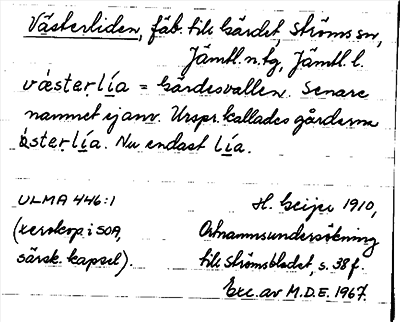 Västerliden, fäb. till Gärdet, Ströms sn,
Jämtl. n. tg, Jämtl. l.
væsterlía = Gärdesvallen. Senare
namnet ej anv. Urspr. kallades gårdarna
østerlía. Nu endast lía.
ULMA 446:1
(xerokop. i SOA,
särsk. kapsel).
H. Geijer 1910,
Ortnamnsundersökning
till Strömsbladet, s. 38 f.
Exc. av M.D.E. 1967.